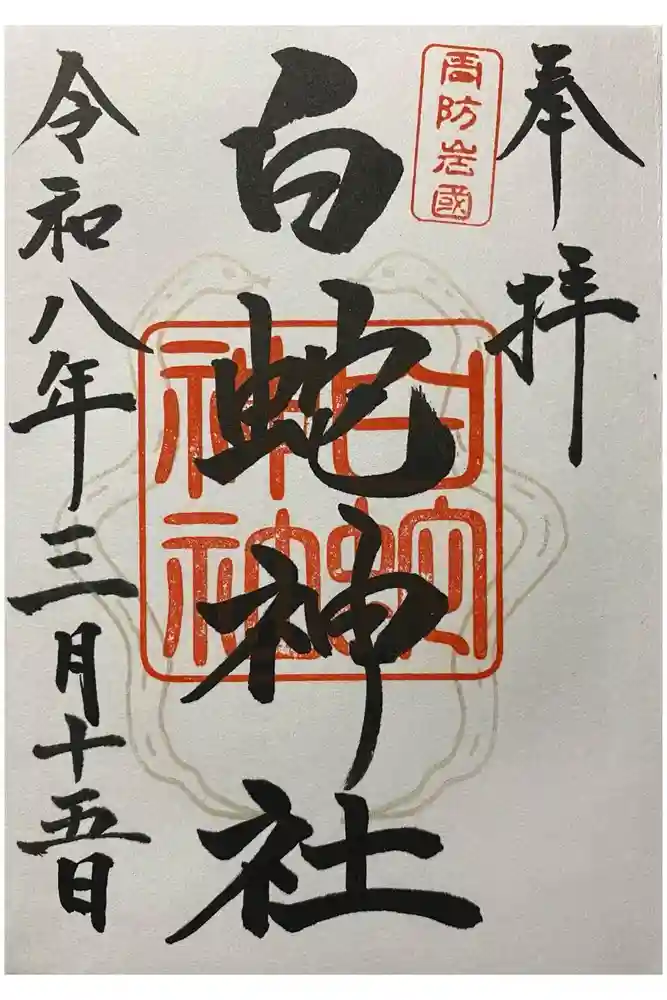 奉拝
周防岩國
白蛇神社
白蛇神社
令和八年三月十五日